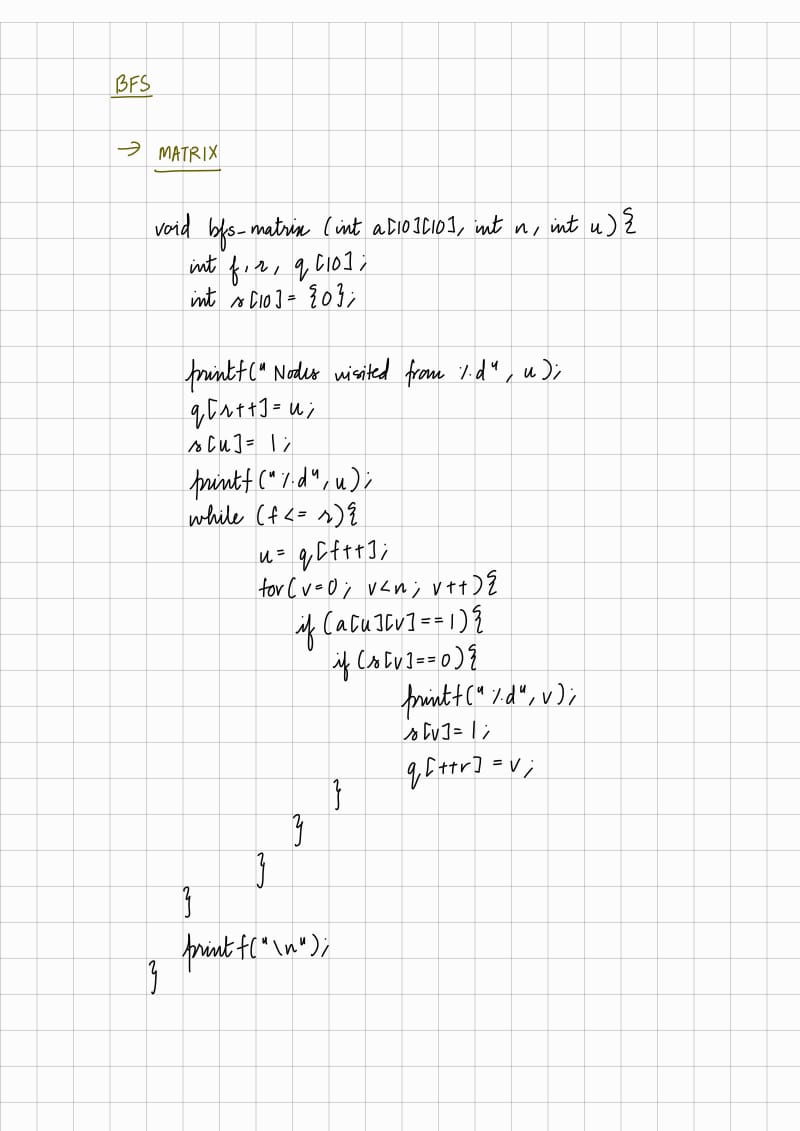 BFS
→ MATRIX
void bfs-matrix (int a[10][10], int n, int u){
int f, r, q[10];
int s[10] = {0};
printf("Nodes visited from %d", u);
q[r++]= u;
s[u]= 1;
printf("%d", u);
while (f <= r){
u= q[f++];
for(v=0; v<n; v++){
if (a[u][v]==1){
if (s[v]==0){
printf("%d", v);
s[v]=1;
q[++r] = v;
}
}
}
}
printf("\n");
}